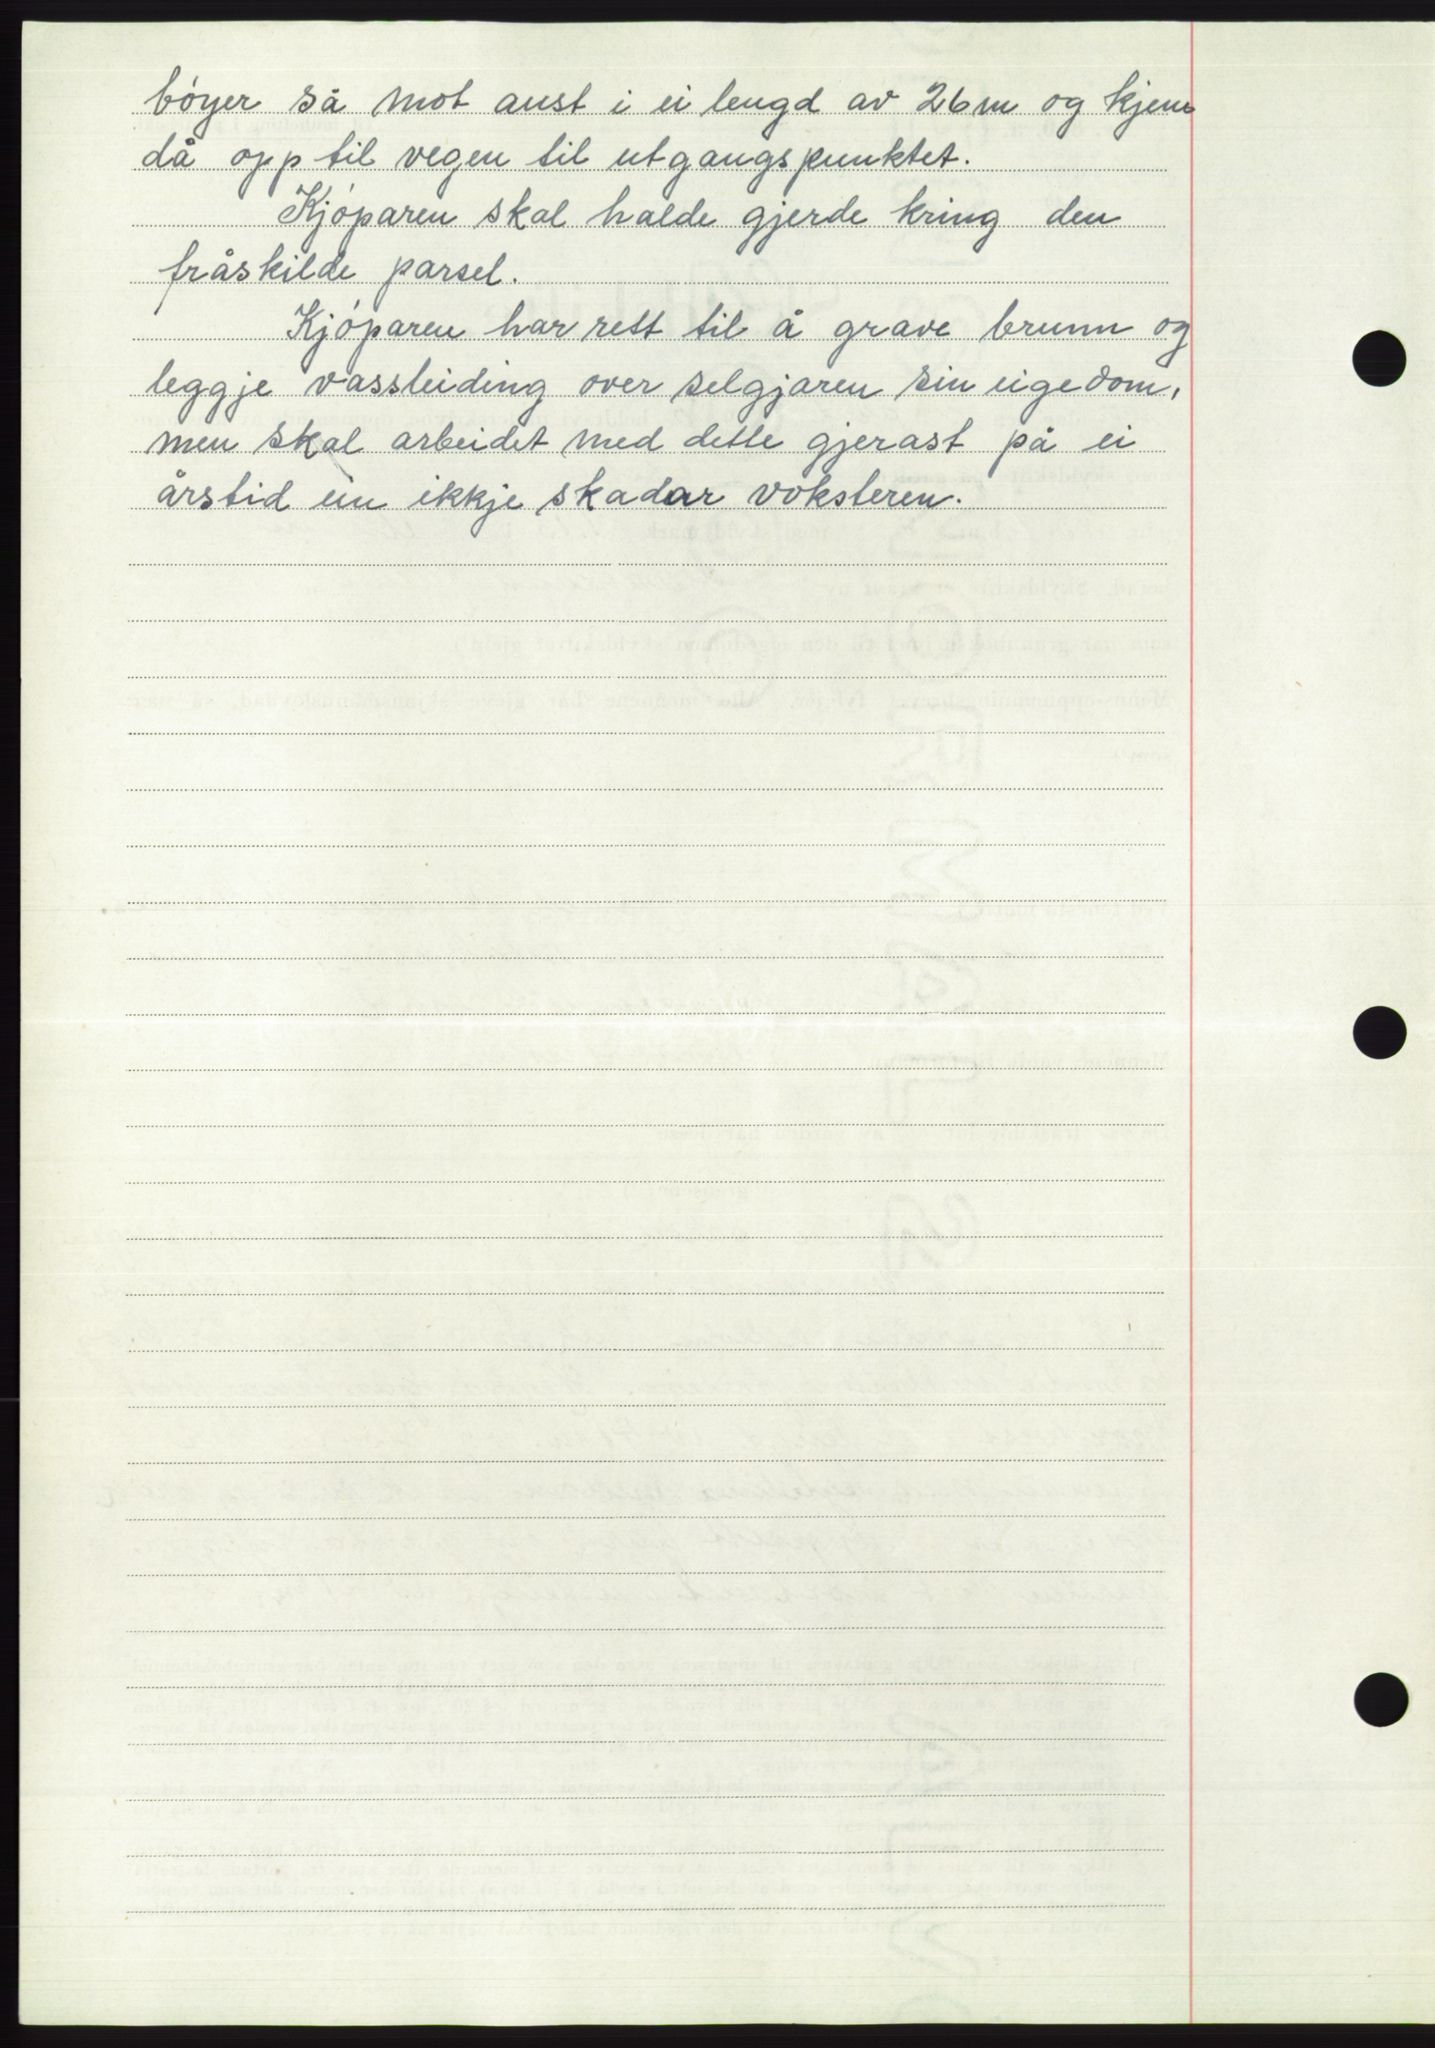 bøyer så mot aust i ei lengd av 26 m og kjem
då opp til vegen til utgangspunktet.
Kjøparen skal halde gjerde kring den
fråskilde parsel.
Kjøparen har rett til å grave brunn og
leggje vassleiding over selgjaren sin eigedom,
men skal arbeidet med dette gjerast på ei
årstid ein ikkje skadar voksteren.